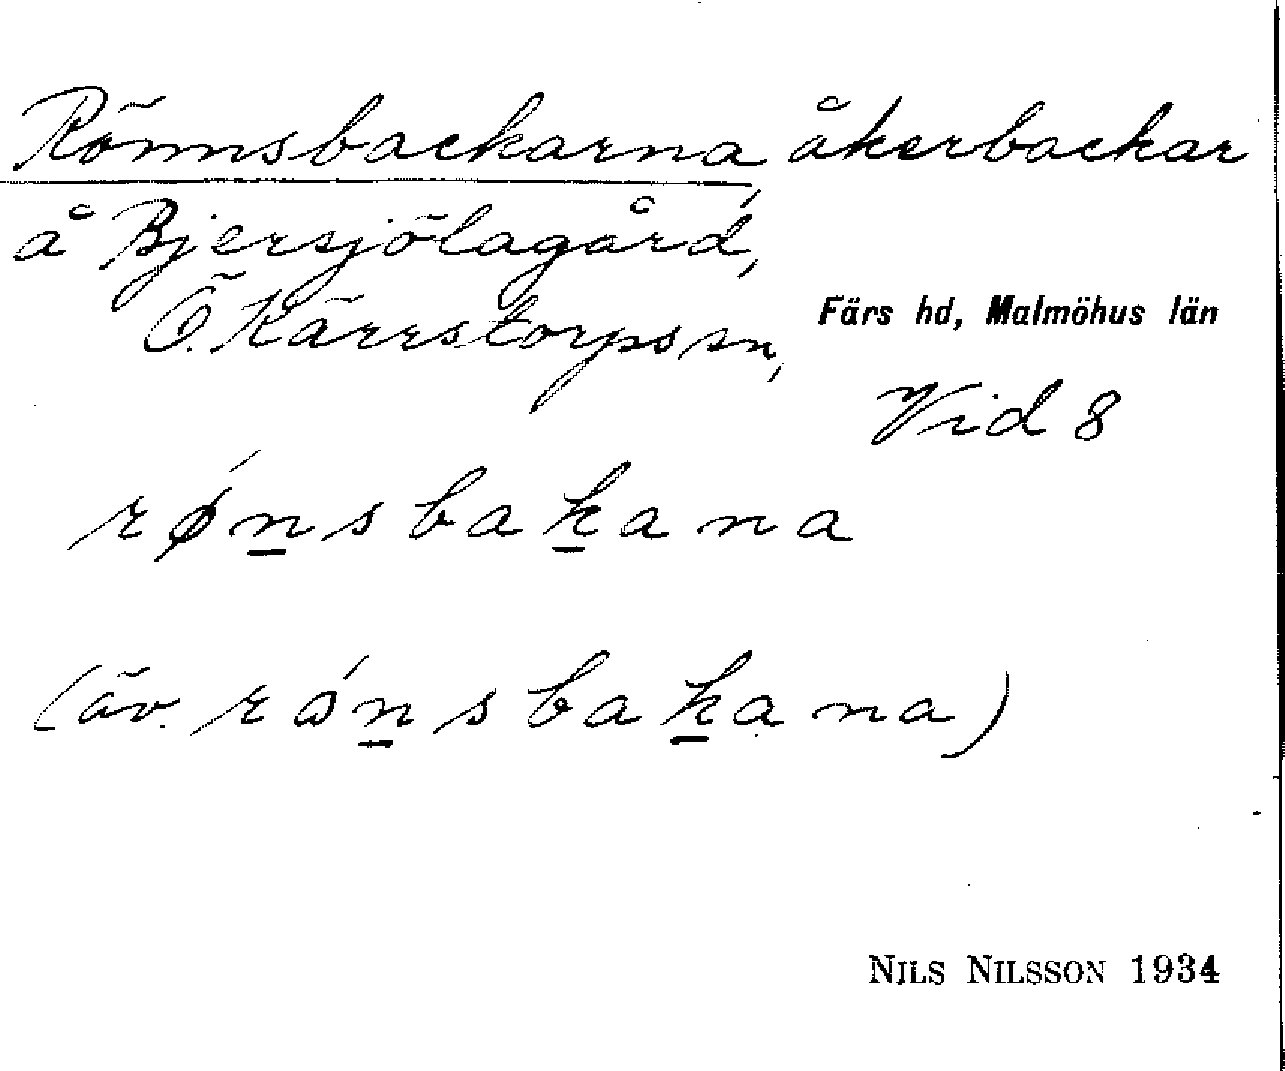 Rönnsbackarna, åkerbackar
å Bjersjölagård,
Ö. Kärrstorps sn, Färs hd, Malmöhus län
Vid 8
rǿn̲sbak̲ana
(äv. rɷ́n̲sbak̲ana)
NILS NILSSON 1934